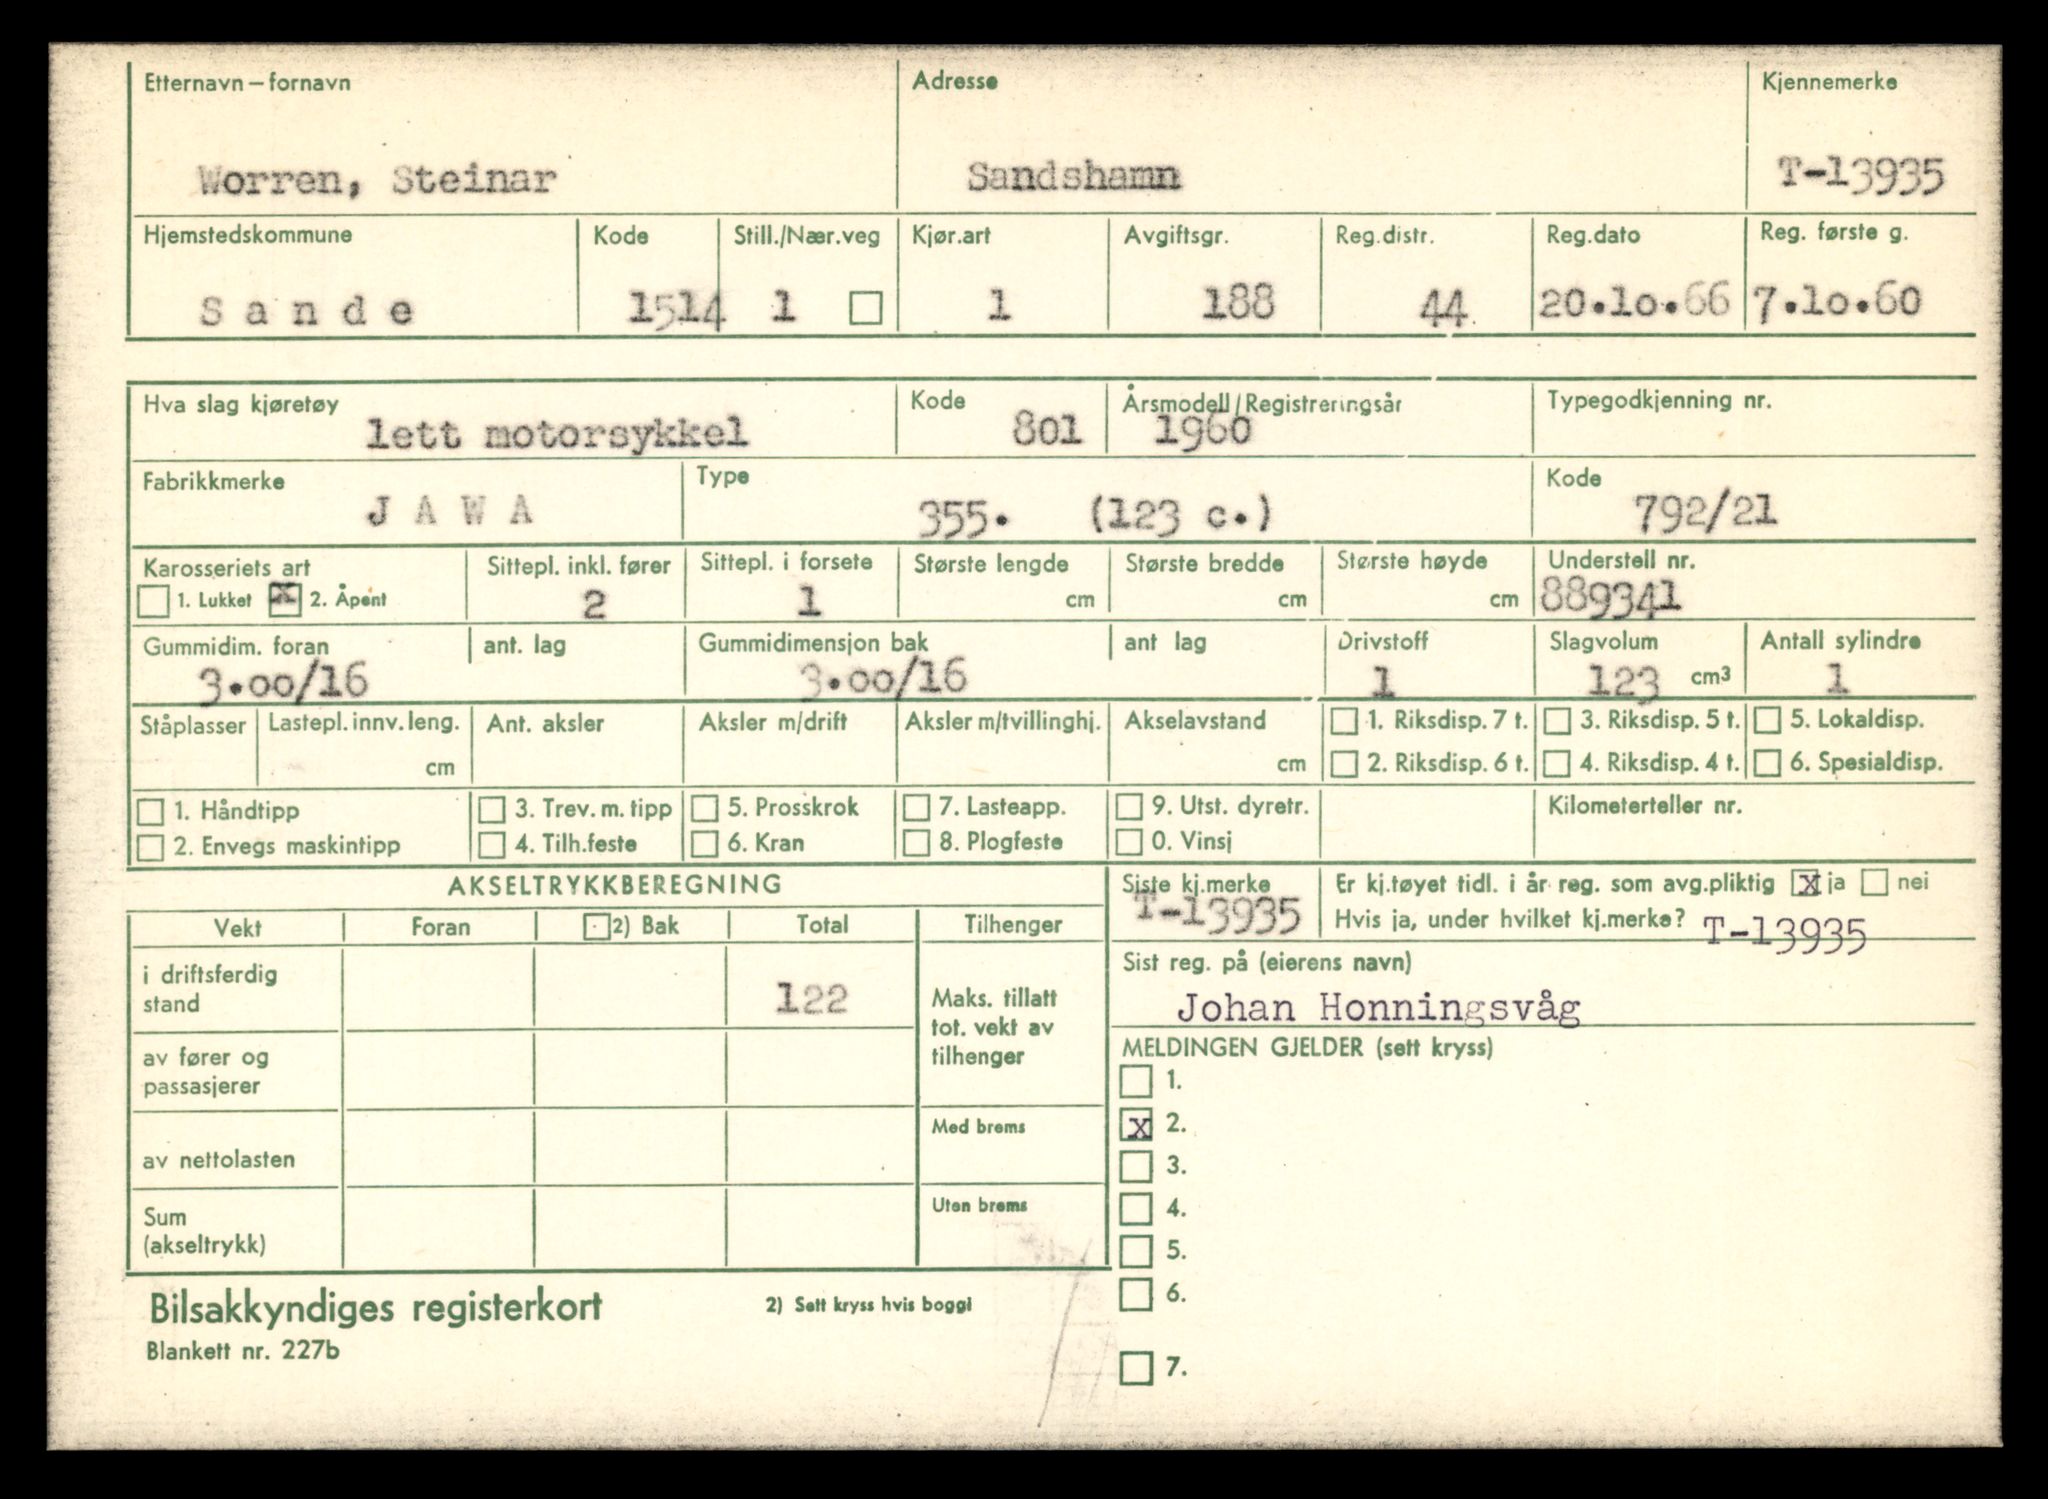 Etternavn – fornavn Adresse Kjennemerke
Worren, Steinar Sandshamn T-13935
Hjemstedskommune Kode Still./Nær.veg Kjør.art Avgiftsgr. Reg.distr. Reg.dato Reg. første g.
S a n d e 1514 1 1 188 44 20.10.66 7.10.60
Hva slag kjøretøy Kode Årsmodell/Registreringsår Typegodkjenning nr.
lett motorsykkel 801 1960
Fabrikkmerke Type Kode
J A W A 355. (123 c.) 792/21
Karosseriets art Sittepl. inkl. fører Sittepl. i forsete Største lengde Største bredde Største høyde Understell nr.
1. Lukket x 2. Åpent 2 1 cm cm cm 889341
Gummidim. foran ant. lag Gummidimensjon bak ant lag Drivstoff Slagvolum Antall sylindre
3.00/16 3.00/16 1 123 cm³ 1
Ståplasser Lastepl. innv. leng. Ant. aksler Aksler m/drift Aksler m/tvillinghj. Akselavstand 1. Riksdisp. 7 t. 3. Riksdisp. 5 t. 5. Lokaldisp.
cm cm 2. Riksdisp. 6 t. 4. Riksdisp. 4 t. 6. Spesialdisp.
1. Håndtipp 3. Trev. m. tipp 5. Prosskrok 7. Lasteapp. 9. Utst. dyretr. Kilometerteller nr.
2. Envegs maskintipp 4. Tilh.feste 6. Kran 8. Plogfeste 0. Vinsj
AKSELTRYKKBEREGNING Siste kj.merke Er kj.tøyet tidl. i år reg. som avg.pliktig x ja nei
T-13935 Hvis ja, under hvilket kj.merke? T-13935
Vekt Foran 2) Bak Total Tilhenger
Sist reg. på (eierens navn)
i driftsferdig
stand 122 Maks. tillatt
tot. vekt av
tilhenger
Johan Honningsvåg
av fører og
passasjerer
MELDINGEN GJELDER (sett kryss)
1.
av nettolasten Med brems x 2.
3.
Sum
(akseltrykk) Uten brems 4.
5.
6.
Bilsakkyndiges registerkort 2) Sett kryss hvis boggi
Blankett nr. 227b 7.